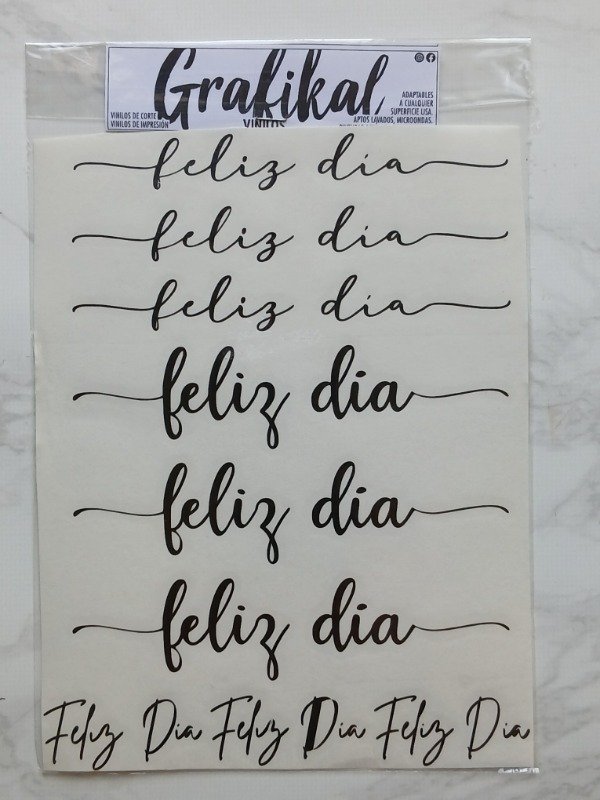 Grafikal
VINILOS DE CORTE
VINILOS DE IMPRESIÓN
VINILOS
ADAPTABLES
A CUALQUIER
SUPERFICIE LISA.
APTOS LAVADOS, MICROONDAS.
feliz día
feliz día
feliz día
feliz dia
feliz dia
feliz dia
Feliz Dia Feliz Dia Feliz Dia